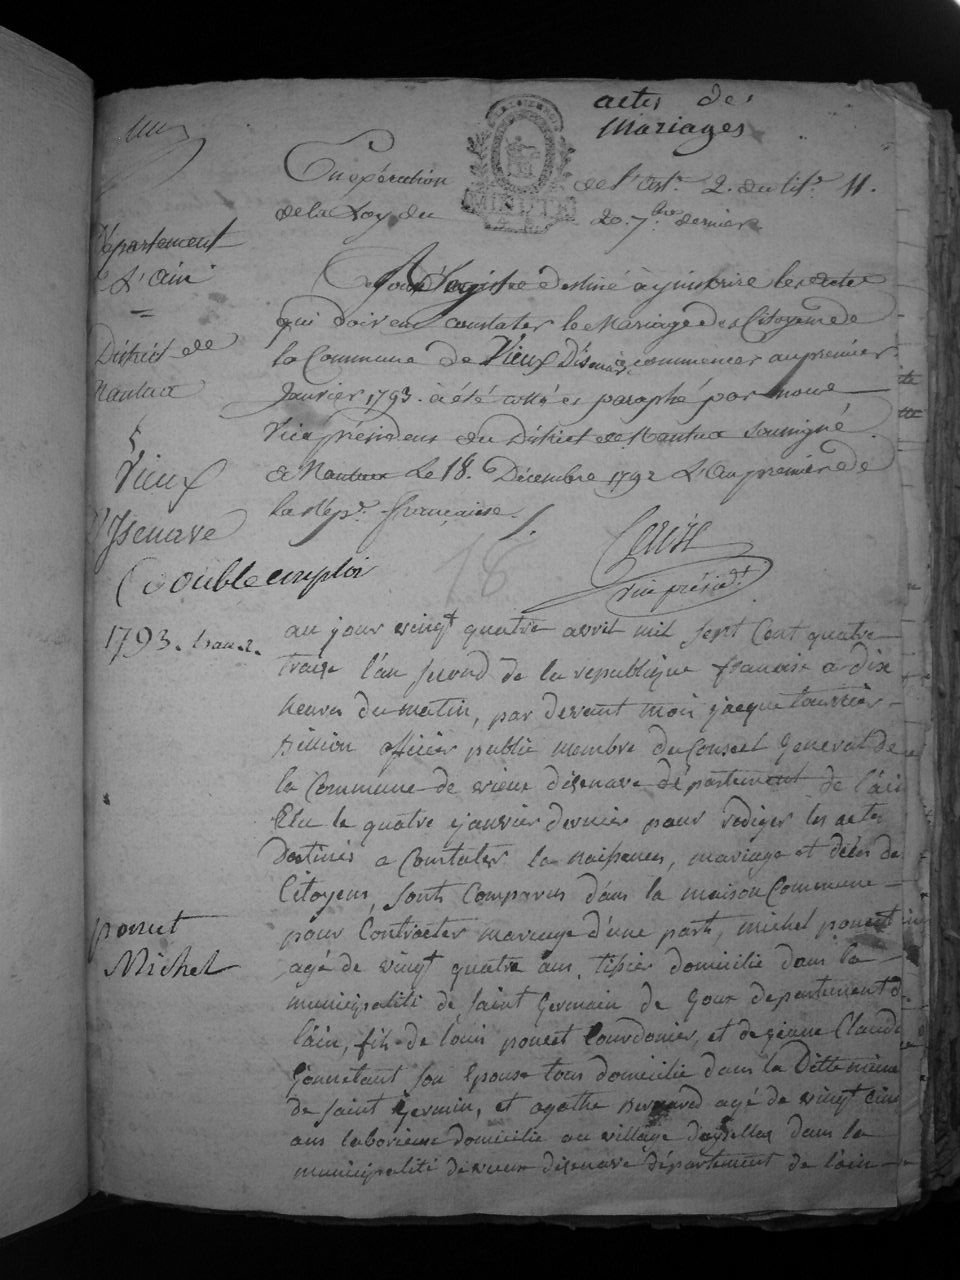 actes des
Mariages
En exécution de l'art. 2. du tit. 11.
de la Loy du 20. 7bre dernier
MINUTE
Département
de L'ain
District de
Nantua
Vieux
D'Isenave
(double emploi
registre destiné à y inscrire les actes
qui doivent constater le Mariage des Citoyens de
la Commune de Vieux D'isenave, commencer au premier
Janvier 1793. a été cotté et paraphé par nous
Vice président du District de Nantua soussigné
a Nantua Le 18. Décembre 1792 L'an premier de
la Rép. française.
18
vice présidt
1793. l'an 2.
au jour vingt quatre avril mil sept Cent quatre
traize l'an second de la republique francaise a dix
heures du matin, par devant moi jacque
officier public membre du Conseil General de
la Commune de vieux disenave département de l'ain
Elu le quatre janvier dernier pour rediger les actes
destinés a Constater la naissences, mariage et décès de
Citoyens, sont Comparus dans la maison Commune
pour Contracter mariage d'une part, michel ponect
ponect
Michel
agé de vingt quatre ans, tisier domicilie dans la
municipalité de saint Germain de Goux departement de
l'ain, fils de louis ponect Courdonier, et de jeanne Claude
son Epouse tous domicilie dans la Ditte
de saint Germin, et agathe Bernard agé de vingt cinq
ans laborieuse domicilie au village dans la
municipalité de vieux disenave département de l'ain